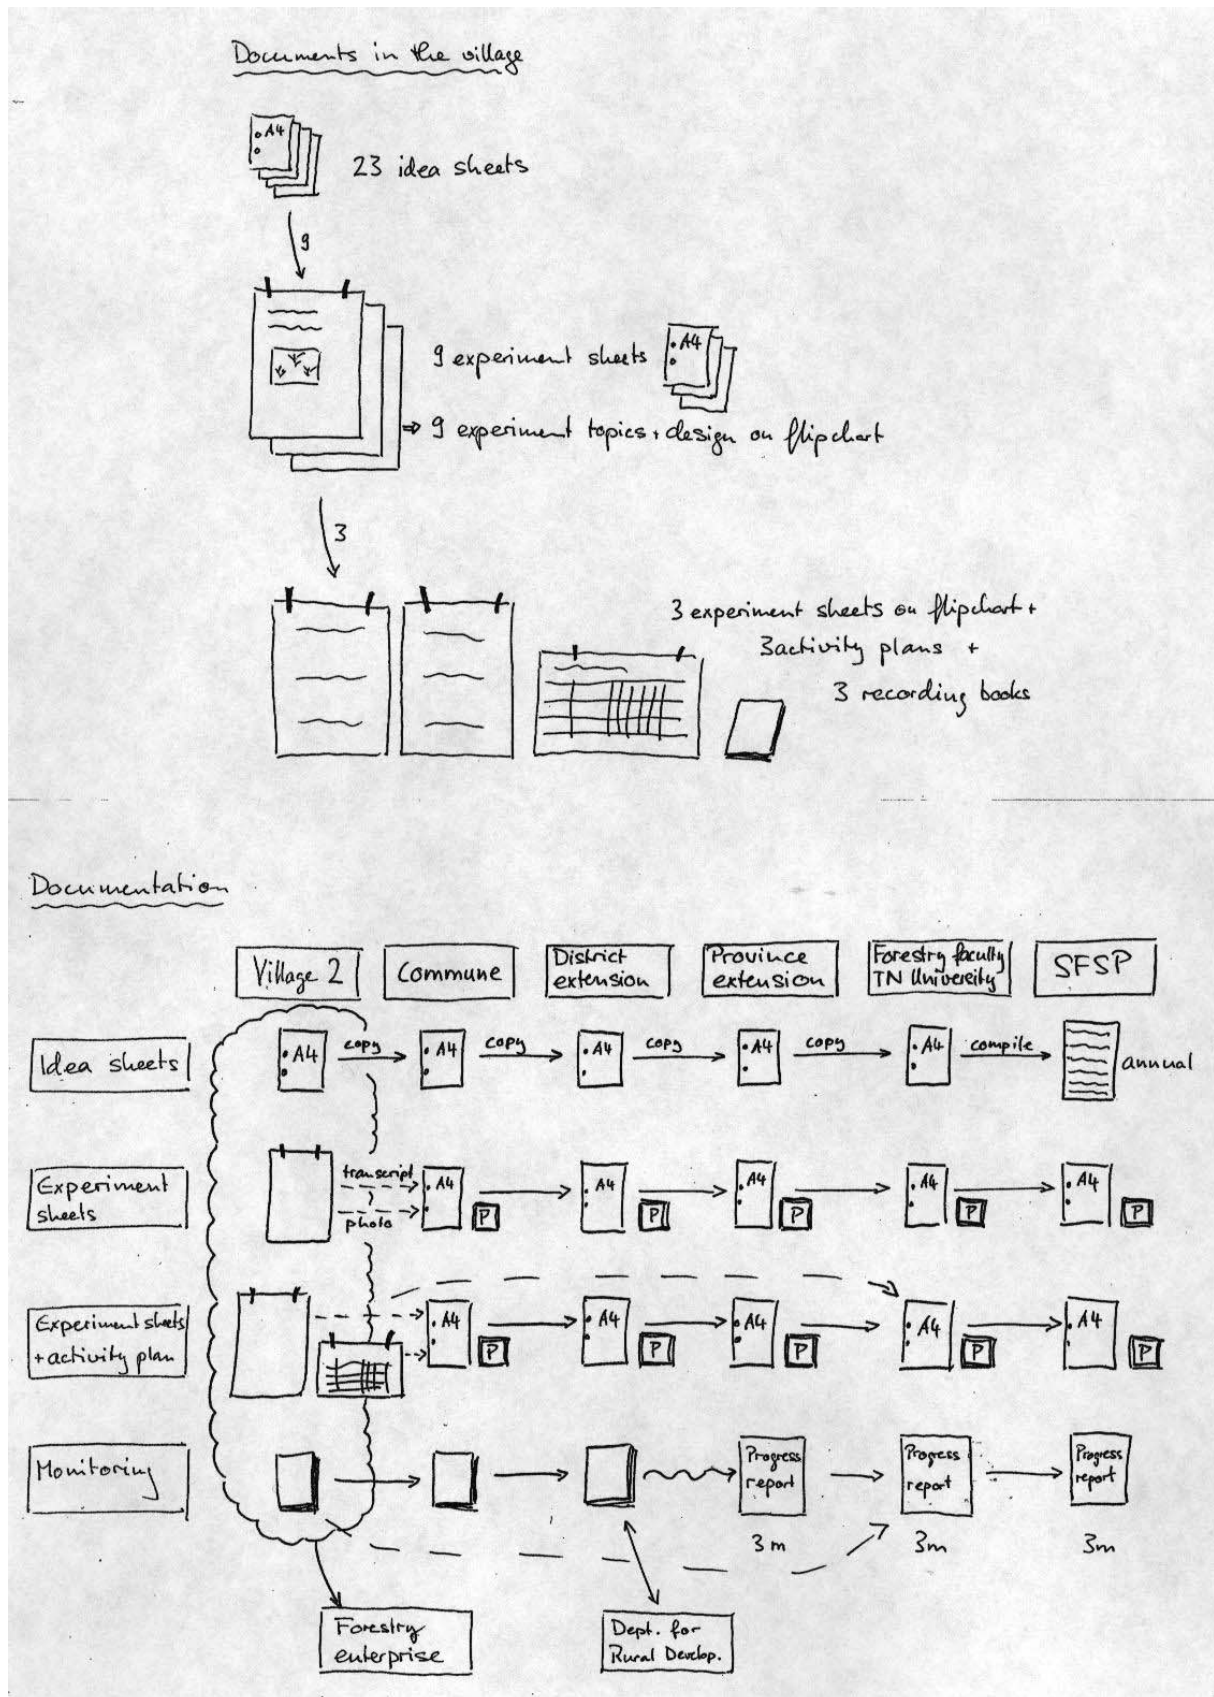 Documents in the village
A4
23 idea sheets
9
9 experiment sheets
A4
⇒ 9 experiment topics + design on flipchart
3
3 experiment sheets on flipchart +
3 activity plans +
3 recording books
Documentation
Village 2
Commune
District
extension
Province
extension
Forestry faculty
TN University
SFSP
Idea sheets
A4
copy
A4
copy
A4
copy
A4
copy
A4
compile
annual
Experiment
sheets
transcript
photo
A4
P
A4
P
A4
P
A4
P
A4
P
Experiment sheets
+ activity plan
A4
P
A4
P
A4
P
A4
P
A4
P
Monitoring
Progress
report
Progress
report
Progress
report
3 m
3m
3m
Forestry
enterprise
Dept. for
Rural Develop.